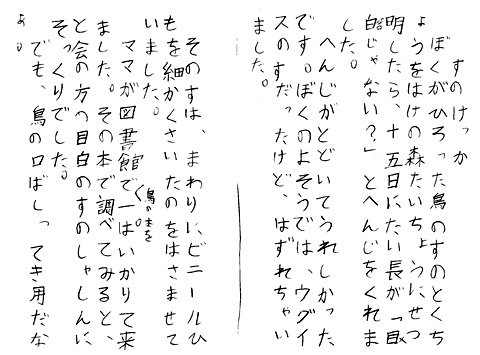 すのけっか
ぼくがひろった鳥のすのとくち
ょうをはけの森たいちょうにせつ
明したら、十五日にたい長が「目
白じゃない?」とへんじをくれま
した。
へんじがとどいてうれしかった
です。ぼくのよそうでは、ウグイ
スのすだったけど、はずれちゃい
ました。
そのすは、まわりにビニールひ
もを細かくさいたのをはさませて
いました。
鳥の本を
ママが図書館で一はいかりて来
ました。その本で調べてみると、
と会の方の目白のすのしゃしんに
そっくりでした。
でも、鳥の口ばしってき用だな
あ。